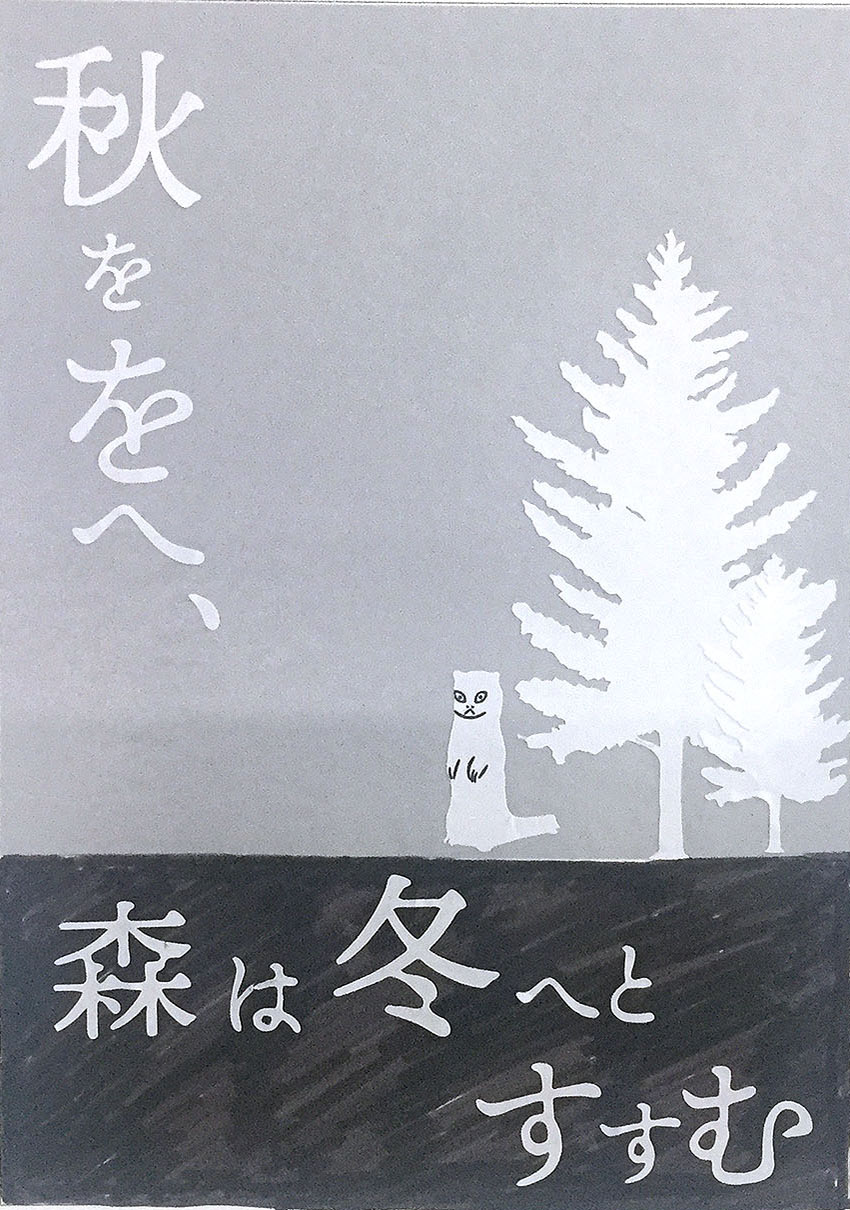 秋ををへ、
森は冬へと
すすむ